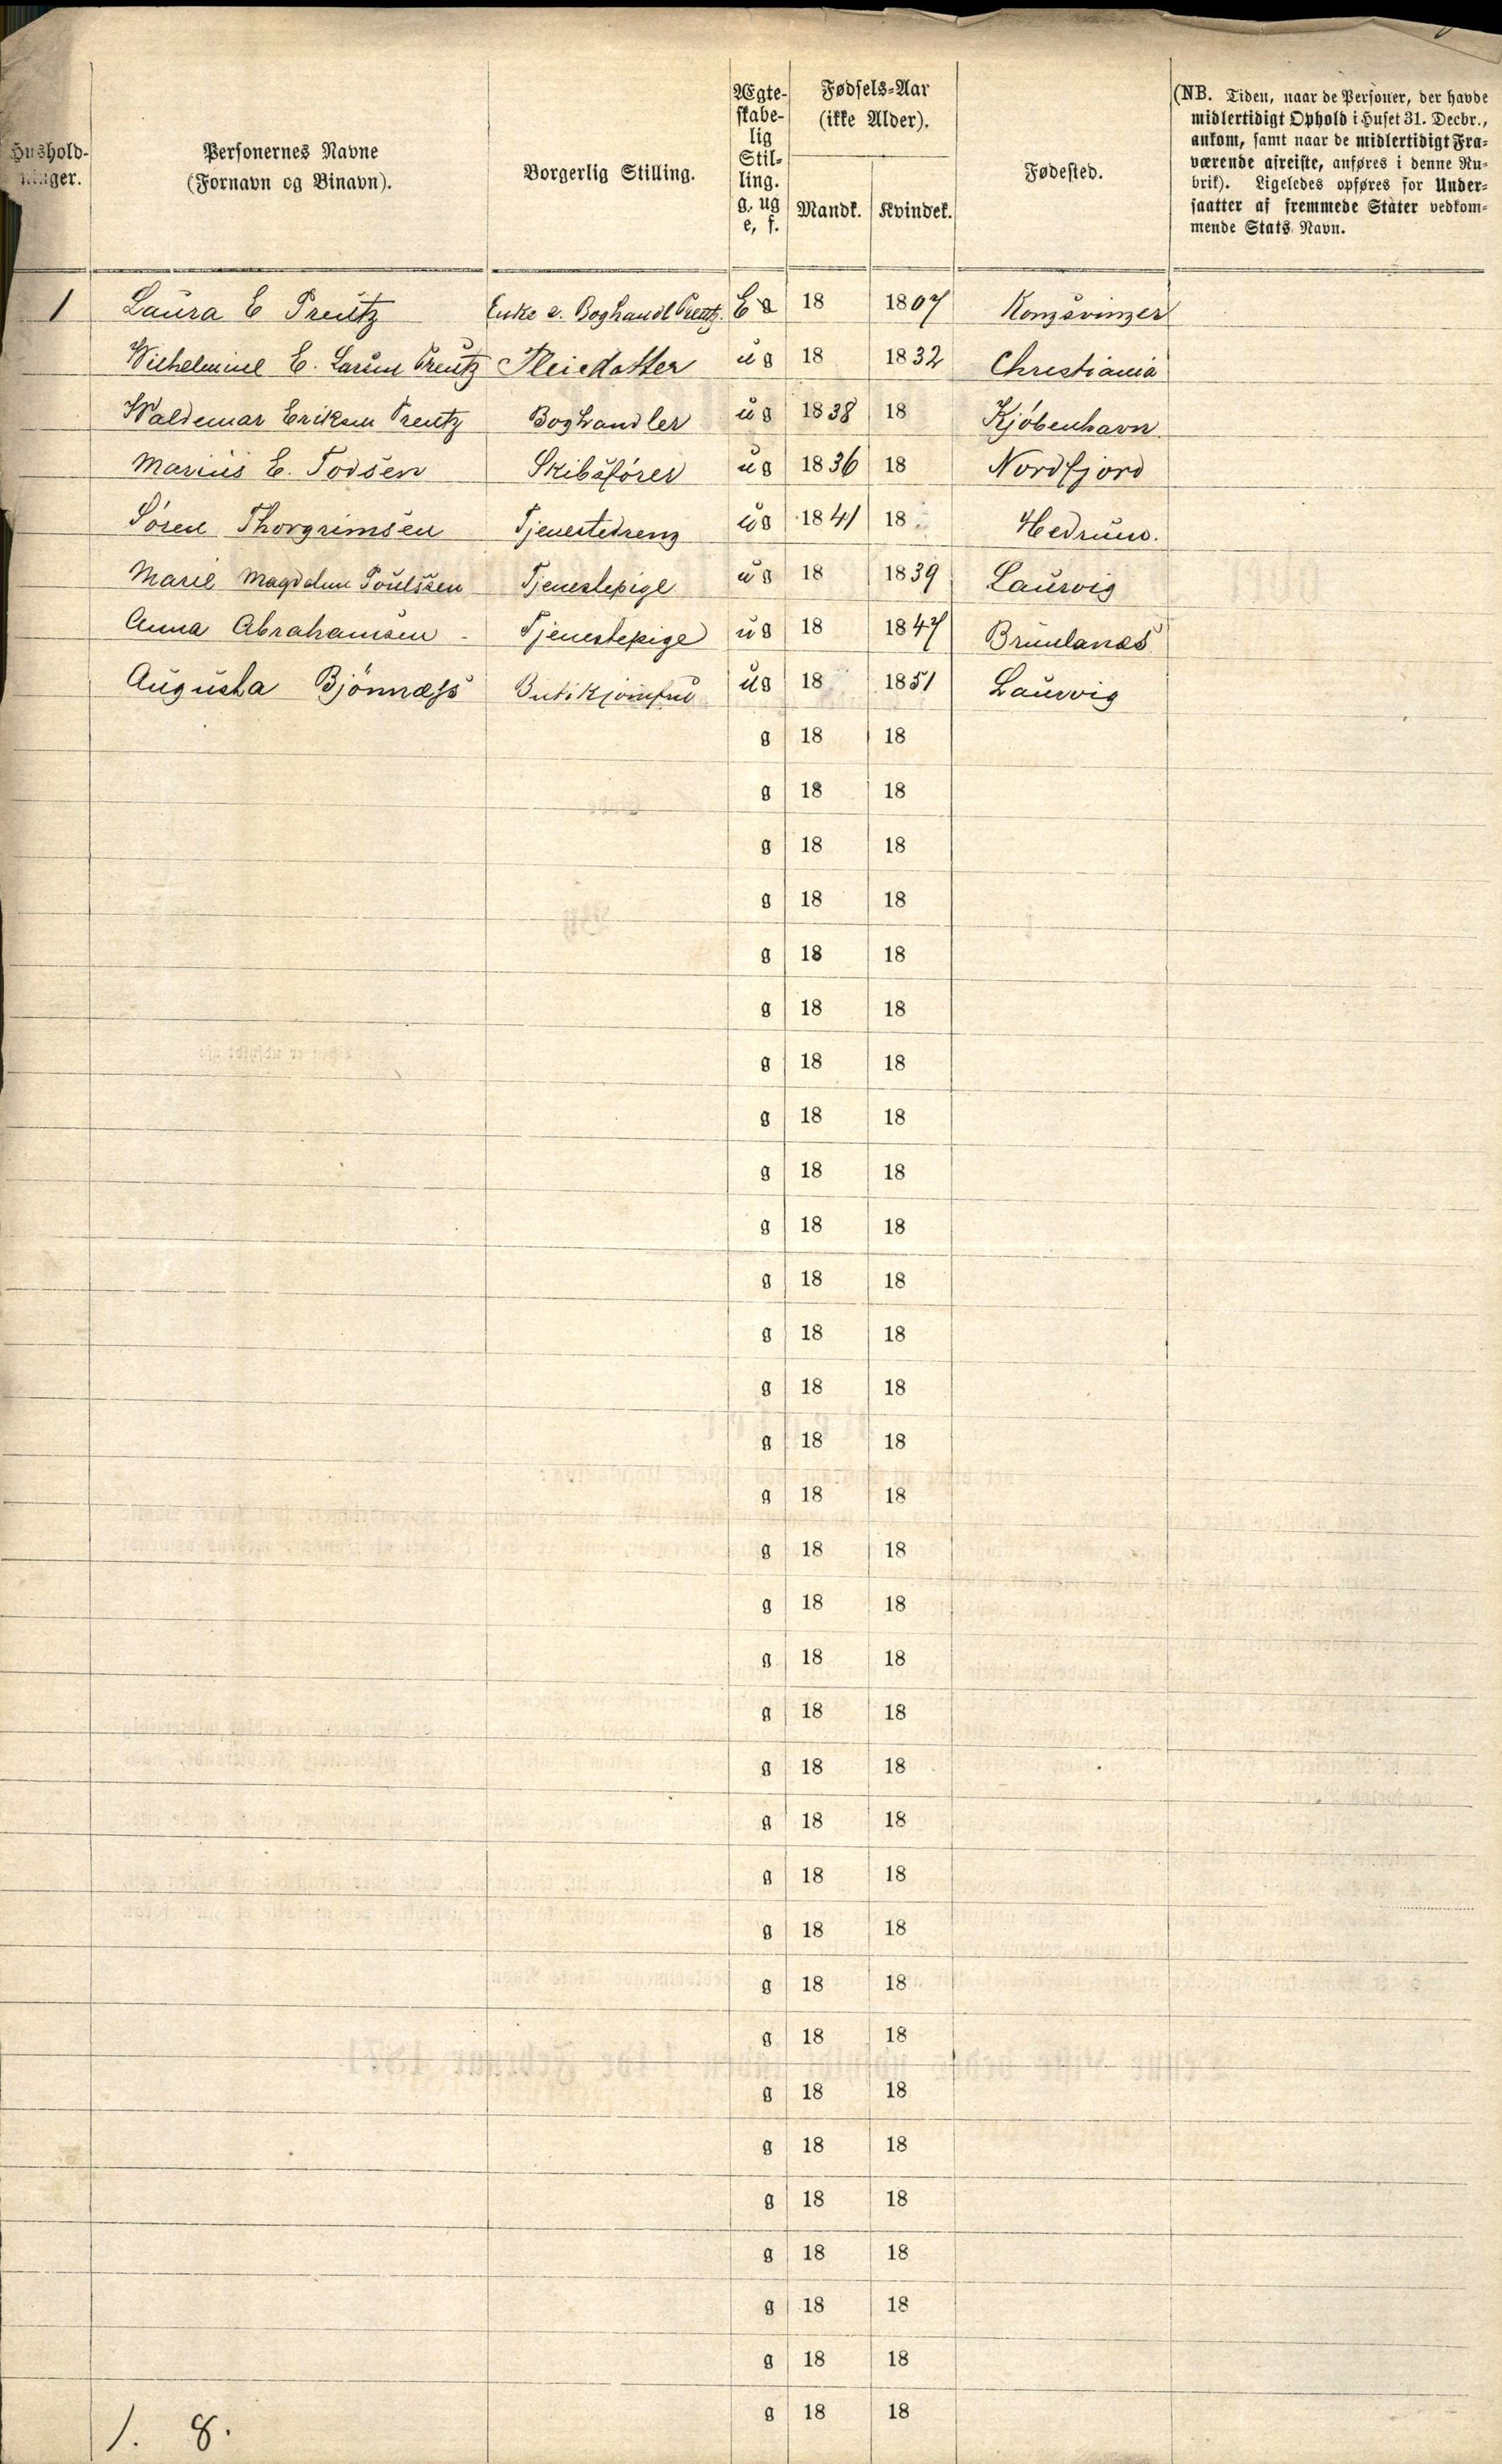 Hushold-
ninger.
Personernes Navne
(Fornavn og Binavn).
Borgerlig Stilling.
Ægte-
skabe-
lig
Stil-
ling.
g, ug
e, f.
Fødsels-Aar
(ikke Alder).
Mandk. Kvindek.
Fødested.
(NB. Tiden, naar de Personer, der havde
midlertidigt Ophold i Huset 31. Decbr.,
ankom, samt naar de midlertidigt Fra-
værende afreiste, anføres i denne Ru-
brik). Ligeledes opføres for Under-
saatter af fremmede Stater vedkom-
mende Stats Navn.
1 Laura E Preutz Enke e. Boghandl Preutz. E 18 1807 Kongsvinger
Wilhelmine E. Larum Preutz Pleiedatter ug 18 1832 Christiania
Waldemar Eriksen Preutz Boghandler ug 1838 18 Kjöbenhavn
Marius E. Todsen Skibsförer ug 1836 18 Nordfjord
Sören Thorgrimsen Tjenestedreng ug 1841 18 Hedrum.
Marie Magdalene Poulssen Tjenestepige ug 18 1839 Laurvig
Anna Abrahamsen Tjenestepige ug 18 1847 Brunlanæs
Augusta Bjönnæss Butikjomfru ug 18 1851 Laurvig
g 18 18
g 18 18
g 18 18
g 18 18
g 18 18
g 18 18
g 18 18
g 18 18
g 18 18
g 18 18
g 18 18
g 18 18
g 18 18
g 18 18
g 18 18
g 18 18
g 18 18
g 18 18
g 18 18
g 18 18
g 18 18
g 18 18
g 18 18
g 18 18
g 18 18
g 18 18
g 18 18
g 18 18
g 18 18
g 18 18
g 18 18
g 18 18
1. 8.